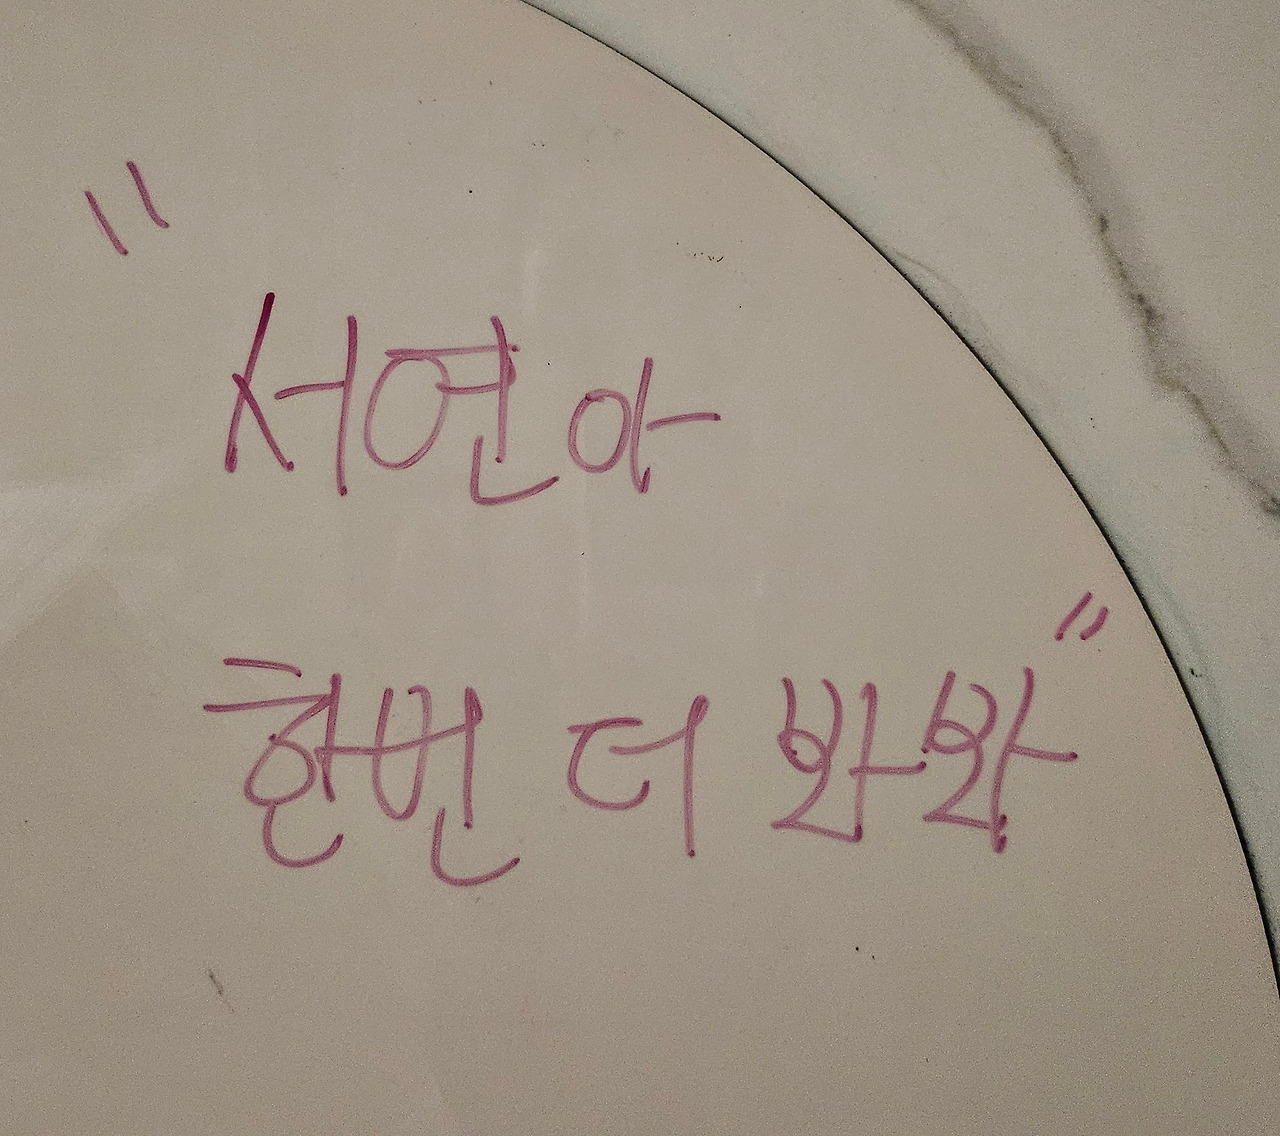 "서연아
한번 더 봐봐"